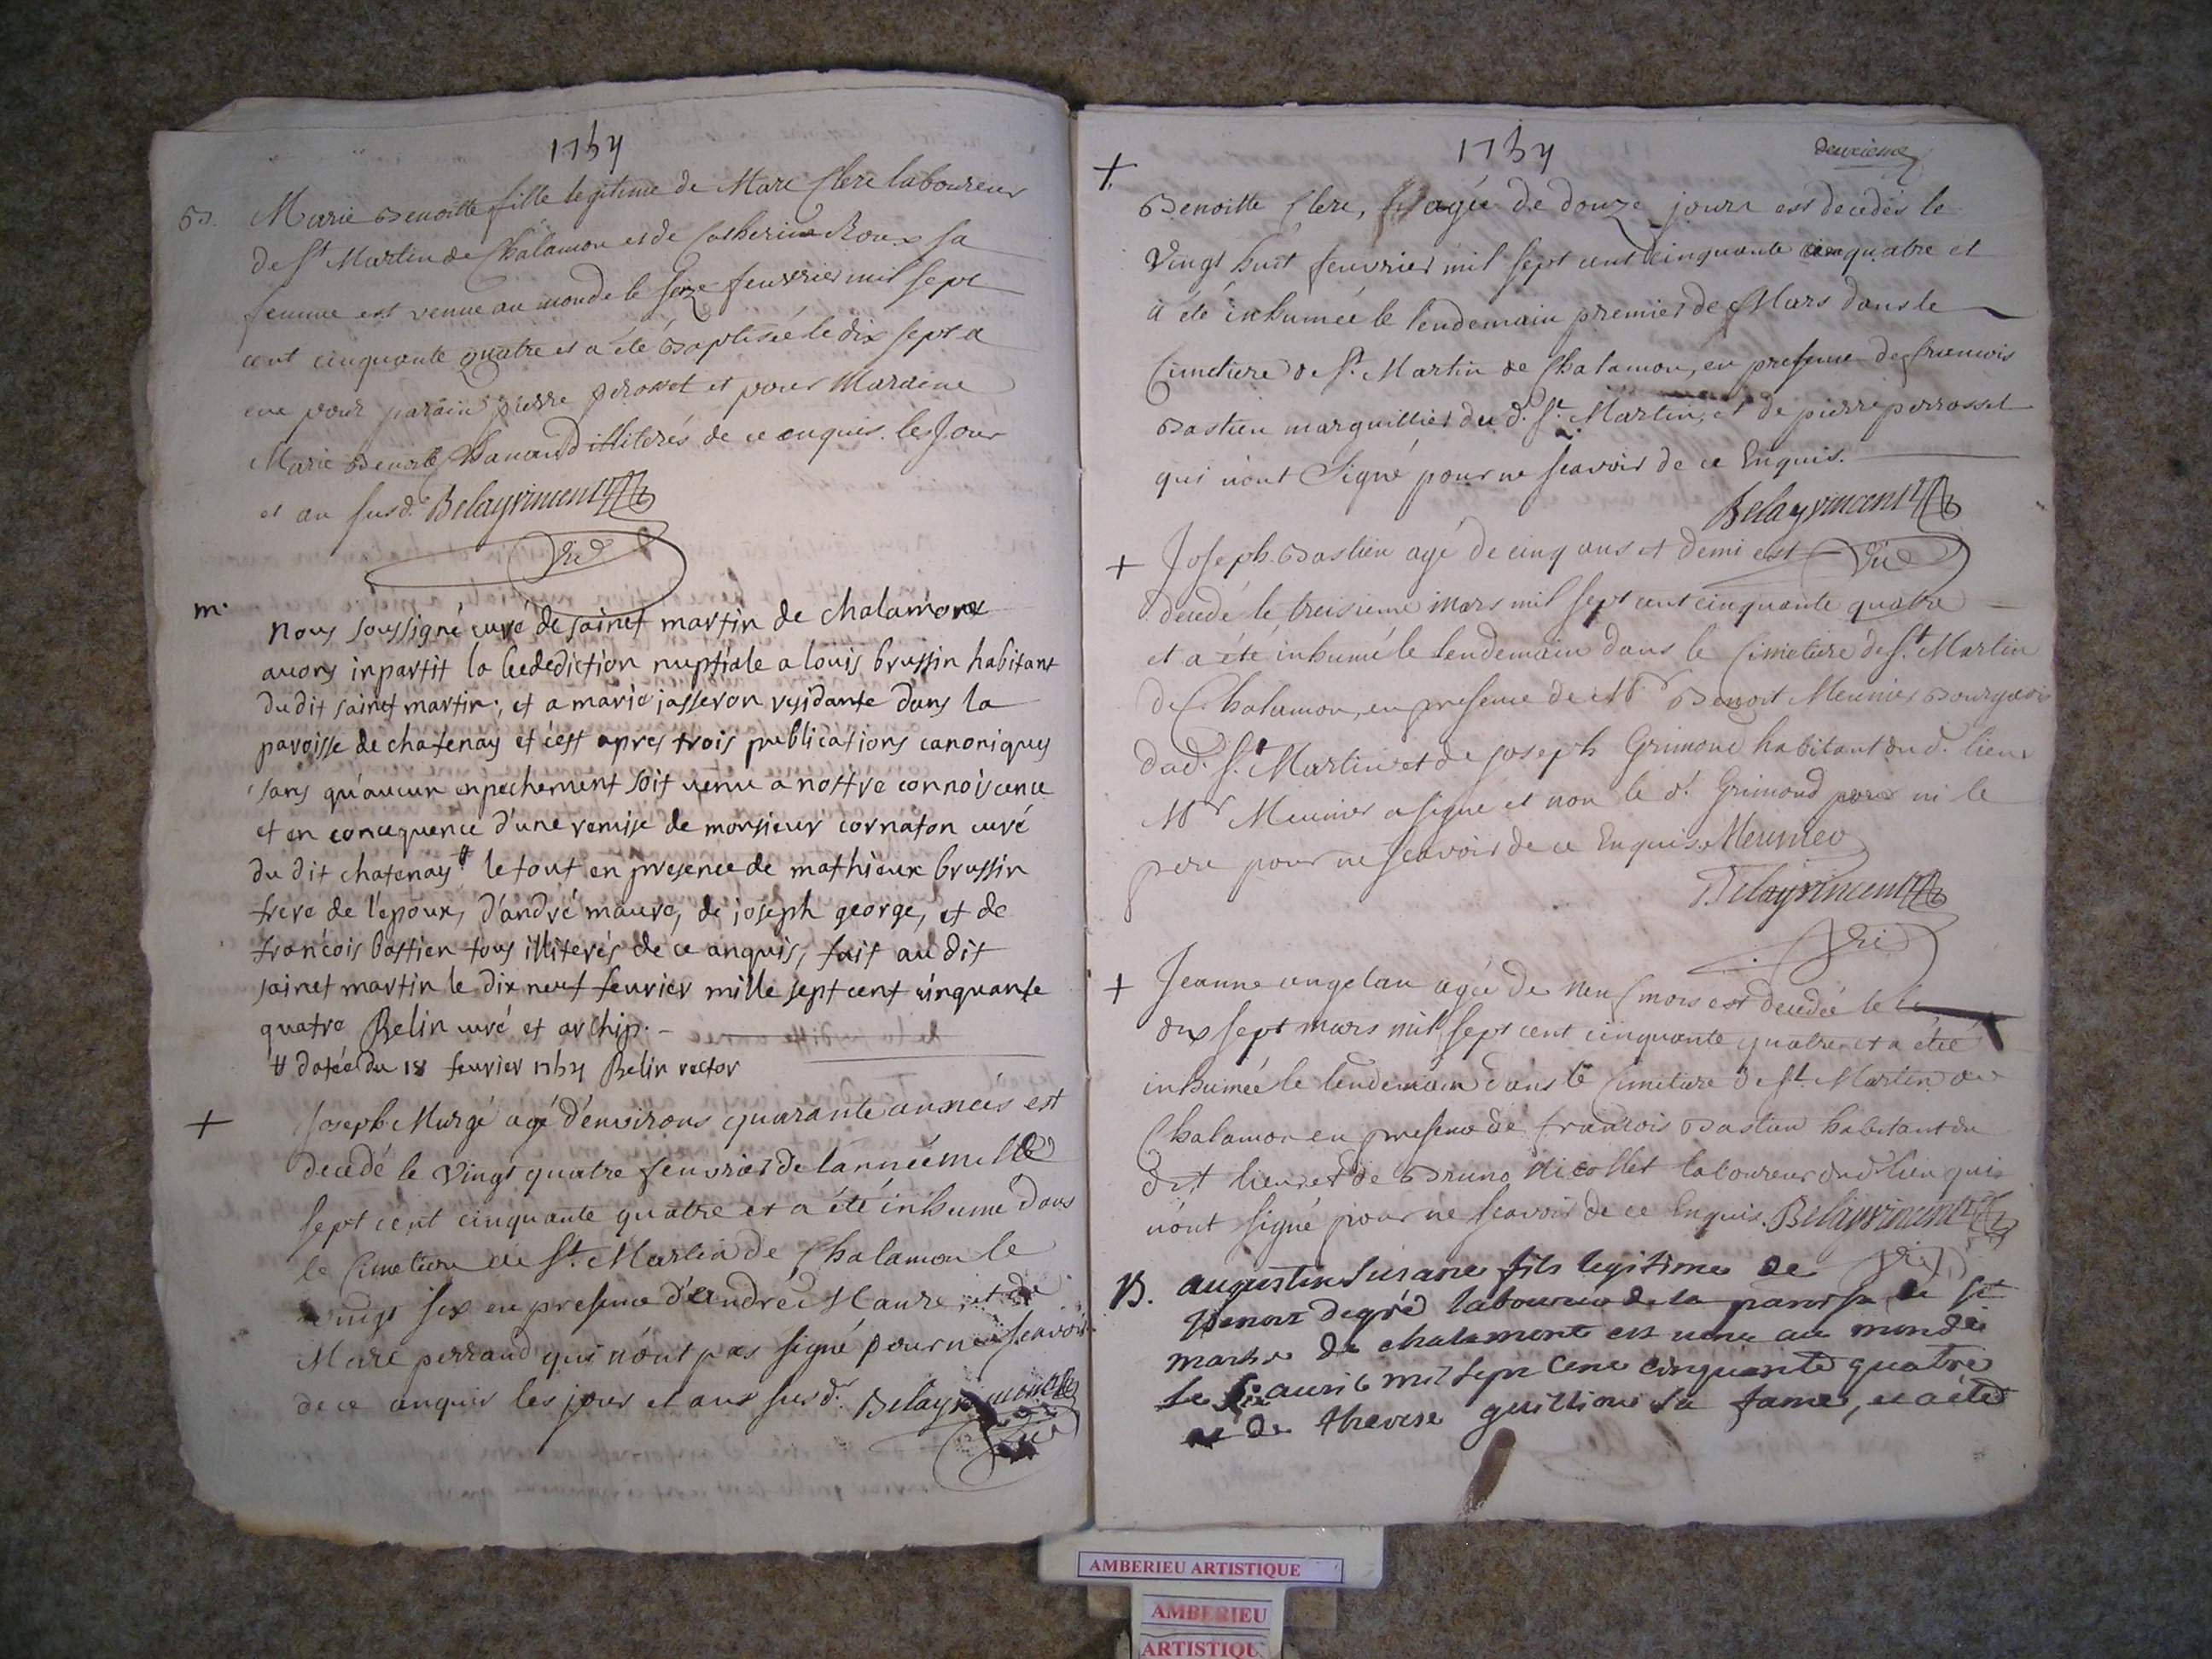 1754
B. Marie Benoitte fille legitime de Marc Clere laboureur
de St Martin de Chalamon et de Catherine Roux sa
femme est venue au monde le seze feuvrier mil sept
cent cinquante quatre et a été Baptisée le dix sept a
eue pour parain pierre perosset et pour Maraine
Marie Benoite Chanand illiterés de ce enquis. les Jour
et an susd. Belayvincent
Vic
m. nous soussigné curé de sainct martin de chalamont
avons inpartit la bededietion nuptiale a louis brussin habitant
du dit sainct martin, et a marie jasseron residante dans la
paroisse de chatenay et c'est apres trois publications canoniques
sans qu'aucun enpechement soit venu a nottre connoiscence
et en concequence d'une remise de monsieur cornaton curé
du dit chatenay # le tout en presence de mathieux brussin
frere de l'epoux, d'andré maure, de joseph george, et de
francois bastien tous illiterés de ce anquis, fait au dit
sainct martin le dix neuf feurier mille sept cent cinquante
quatre Belin curé et archip. -
# datée du 18 feurier 1754 Belin rector
+ Joseph Murgé agé d'environs quarante années est
decedé le vingt quatre feuvrier de l'année mille
sept cent cinquante quatre et a été inhumé dans
le Cimetiere de St. Martin de Chalamon le
vingt six en presence d'André Maure, et de
Marc perraud qui n'ont pas signé pour ne scavoir
de ce anquis les jour et ans susd. Belayvincent
Vic
1754
deuxieme
+
Benoitte Clere, agée de douze jours est decedés le
Vingt huit feuvrier mil sept cent cinquante quatre et
a été inhumée le lendemain premier de Mars dans le
Cimetiere de St. Martin de Chalamon, en presence de francois
Bastien marguillier du d. St. Martin, et de pierre perrosset
qui n'ont Signé pour ne scavoir de ce Enquis.
Belayvincent
Vic
+ Joseph Bastien agé de cinq ans et demi est
decedé le treisieme mars mil sept cent cinquante quatre
et a été inhumé le lendemain dans le Cimetiere de St. Martin
de Chalamon, en presence de Mr Benoit Meunier Bourgeois
dud. St. Martin et de Joseph Grimond habitant du d. lieu
Mr Meunier a signé et non le d. Grimond ni le
pere pour ne scavoir de ce Enquis. Meunier
Belayvincent
Vic
+ Jeanne angelan agée de neuf mois est decedée le
dix sept mars mil sept cent cinquante quatre et a étée
inhumée le lendemain dans le Cimetiere de St. Martin de
Chalamon en presence de francois Bastien habitant du
dit lieu, et de Bruno Nicollet laboureur dud. lieu qui
n'ont signé pour ne scavoir de ce Enquis. Belayvincent
Vic
B. augustin fils legitime de
Benoit degré laboureur de la paroisse de St
martin de chalamont est venu au monde
le auril mil sept cent cinquante quatre
et de therese guillion sa fame, et a été
AMBERIEU ARTISTIQUE
AMBERIEU
ARTISTIQU